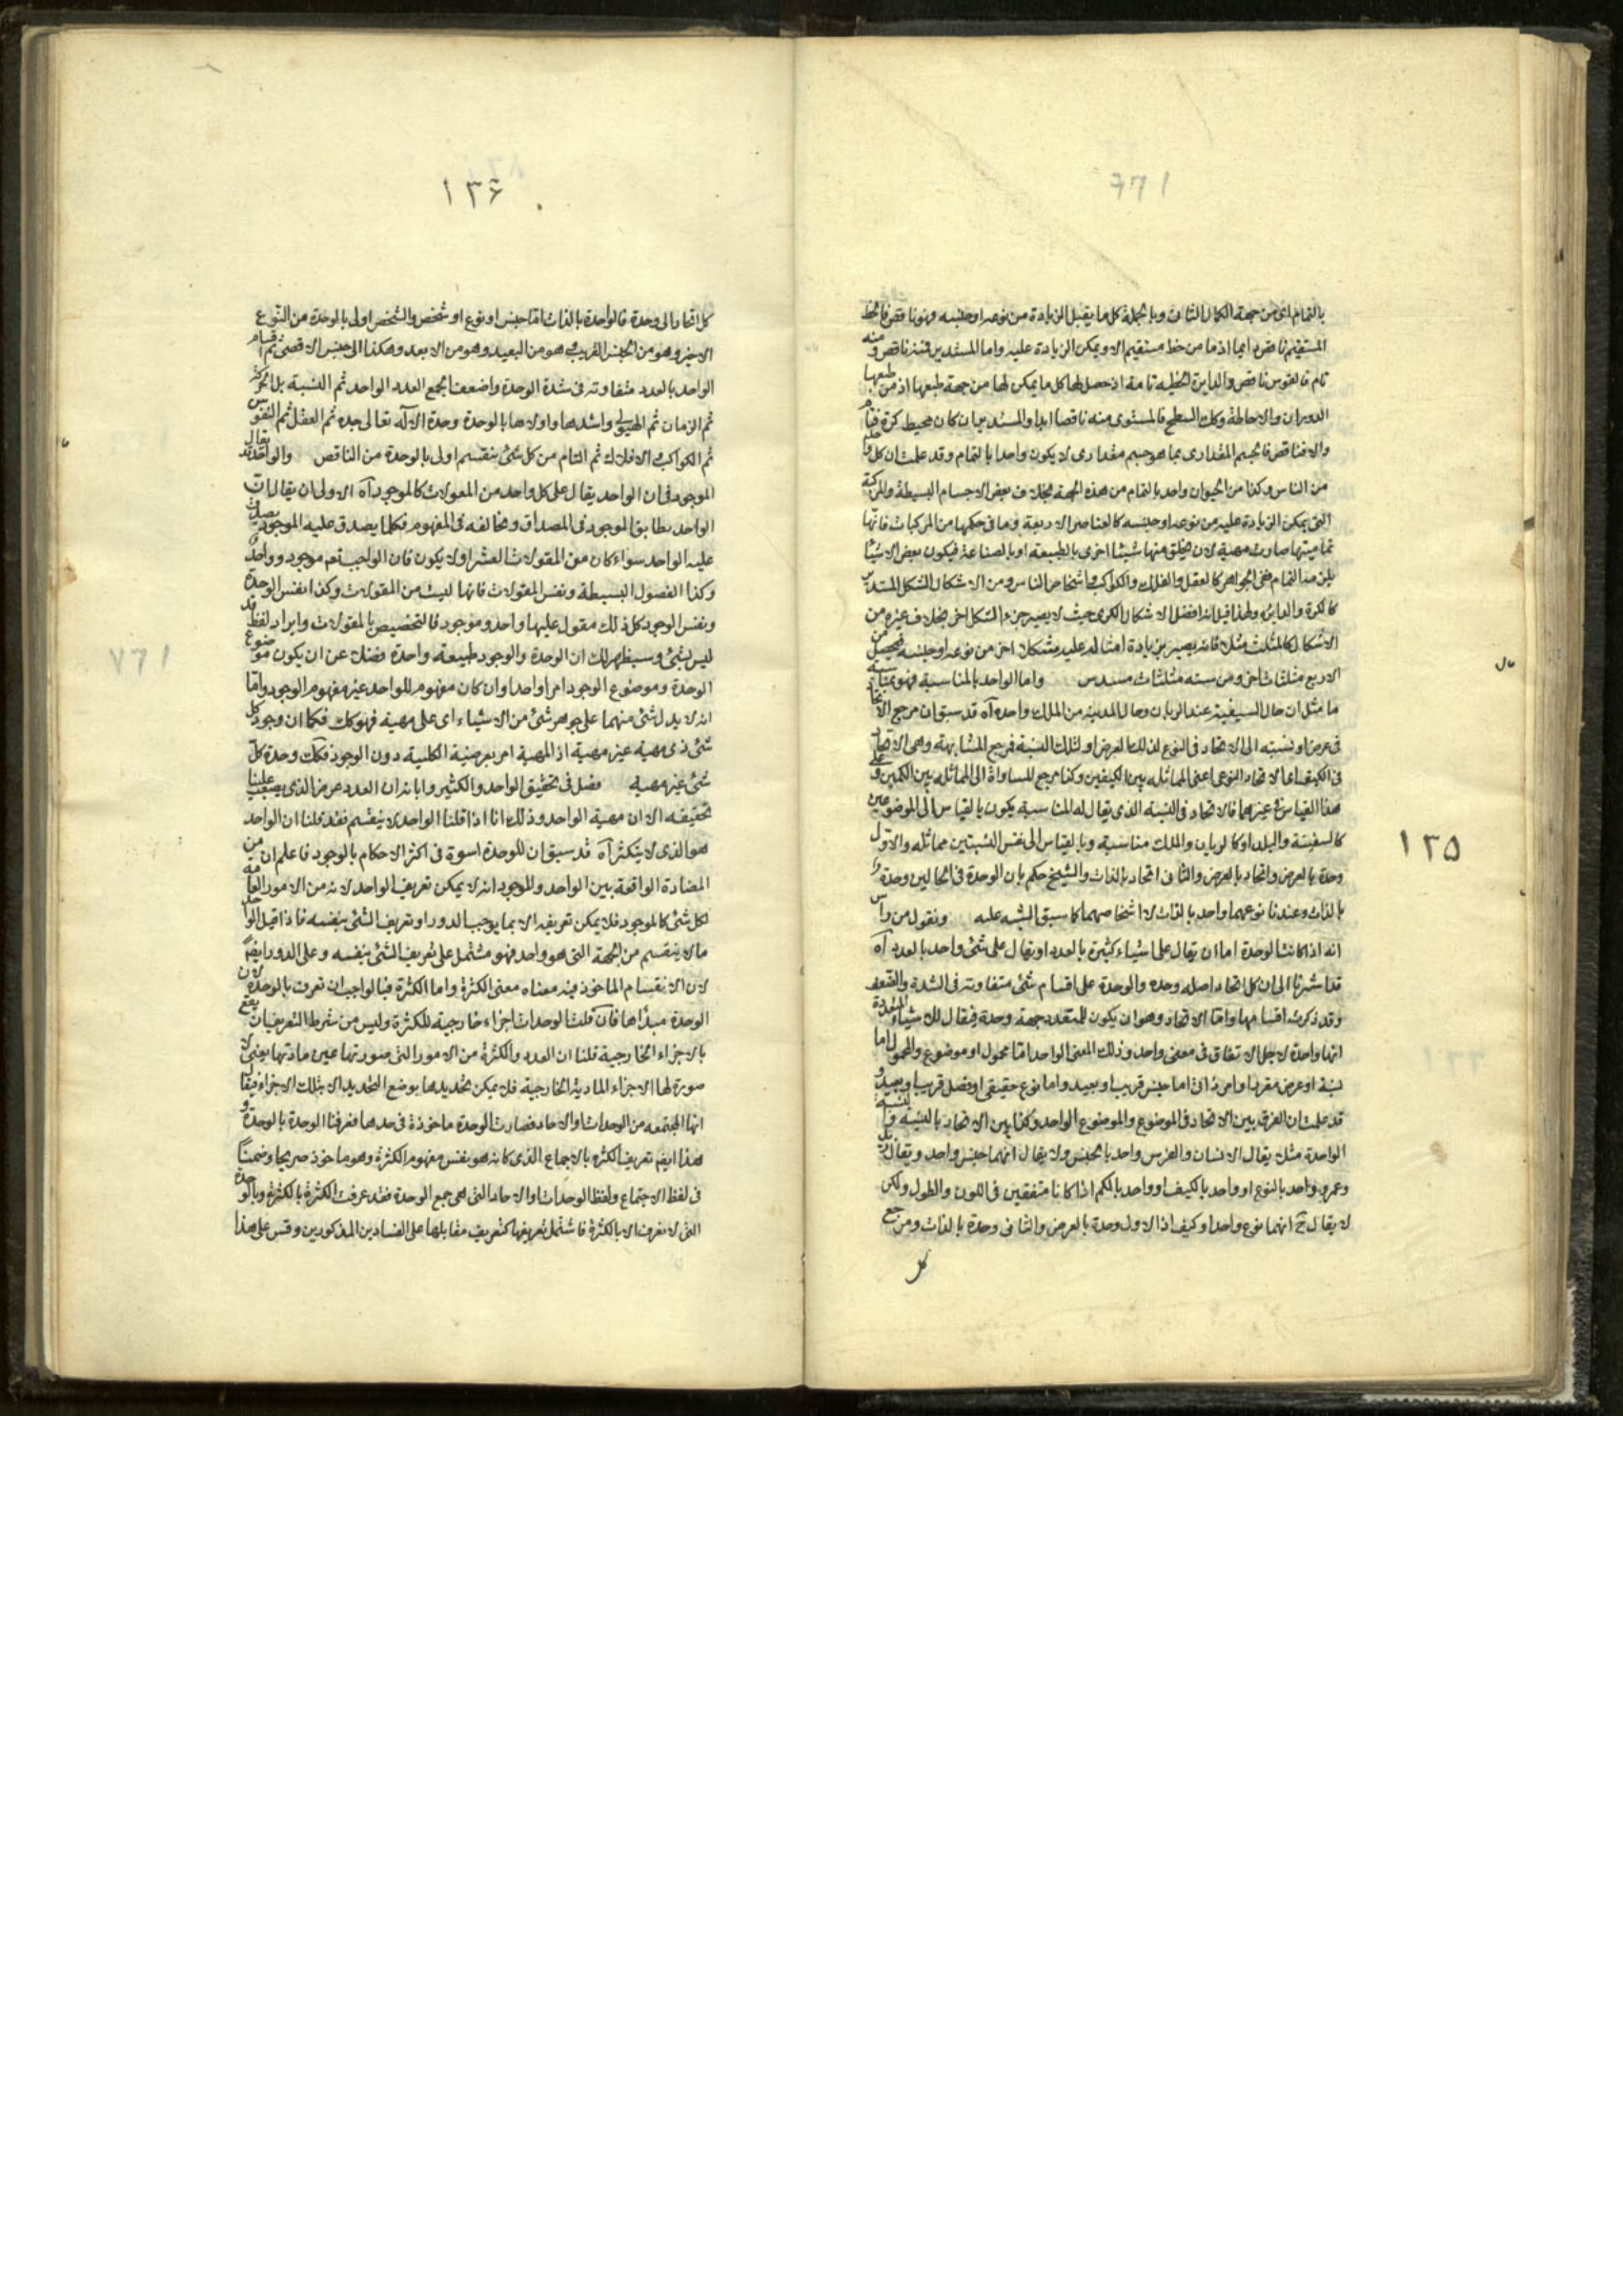 ١٣٥
بالتمام اى من جهة الكمال الثانى وبالجملة كل ما يقبل الزيادة من نوعه او جنسه فهو ناقص فالخط
المستقيم ناقص دايما اذ ما من خط مستقيم الا ويمكن الزيادة عليه واما المستدير فمنه ناقص ومنه
تام فالقوس ناقص والدايرة الخطيه تامة اذ حصل لها كل ما يمكن لها من جهة طبعها اذ من طبعها
الدوران والاحاطة وكك السطح فالمستوى منه ناقصا ابدا والمستدير ان كان محيط كرة فتام
والا فناقص فالجسم المقدارى بما هو جسم مقدارى لا يكون واحدا بالتمام وقد علمت ان كل واحد
من الناس وكذا من الحيوان واحد بالتمام من هذه الجهة بخلاف بعض الاجسام البسيطة والمركبة
التى يمكن الزيادة عليه من نوعه او جنسه كالعناصر الاربعة وما فى حكمها من المركبات فانها
تماميتها صارت مهية لان يخلق منها شيئا اخرى بالطبيعة او بالصناعة فيكون بعض الاشيا
يلزمه التمام ففى الجواهر كالعقل والفلك والكواكب واشخاص الناس ومن الاشكال الشكل المستدير
كالكرة والدايرة ولهذا قيل انه افضل الاشكال الكرى حيث لا يصير جزء الشكل اخر بخلاف غيره من
الاشكال كالمثلث مثلا فانه يصير بزيادة امثاله عليه مشكلا اخر من نوعه او جنسه فيحصل من
الاربع مثلثات اخر ومن سته مثلثات مسدس واما الواحد بالمناسبة فهو بمناسبة
ما مثل ان حال السفينة عند الربان وحال المدينة من الملك واحده آه قد سبق ان مرجع الاتحاد
فى عرض او نسبته الى الاتحاد فى النوع لذلك العرض او لتلك النسبة فمرجع المشابهة وهى الاتحاد
فى الكيف اى الاتحاد النوعى اعنى المماثلة بين الكيفين وكذا مرجع المساواة الى المماثلة بين الكمين وعلى
هذا القياس غيرهما فالاتحاد فى النسبة الذى يقال له المناسبة يكون بالقياس الى الموضوعين
كالسفينة والبلد او كالربان والملك مناسبة وبالقياس الى نفس النسبتين مماثله والاول
وحدة بالعرض واتحاد بالعرض والثانى اتحاد بالذات والشيخ حكم بان الوحدة فى الحالين وحدة
بالذات وعندنا نوعهما واحد بالذات لا اشخاصهما كما سبق التنبيه عليه ونقول من راس
انه اذا كانت الوحدة اما ان تقال على اشياء كثيرة بالعدد او تقال على شئ واحد بالعدد آه
قد اشرنا الى ان كل اتحاد اصله وحدة والوحدة على اقسام شتى متفاوته فى الشدة والضعف
وقد ذكرت اقسامها واما الاتحاد وهو ان يكون للمتعدد جهة وحدة فيقال لك شياء المتعددة
انها واحدة لاجل الاتفاق فى معنى واحد وذلك المعنى الواحد اما محمول او موضوع والمحمول اما
نسبة او عرض مفرد او امر ذاتى اما جنس قريب او بعيد واما نوع حقيقى او فصل قريب او بعيد و
قد علمت ان الفرق بين الاتحاد فى الموضوع والموضوع الواحد وكذا بين الاتحاد بالنسبه والنسبه
الواحدة مثلا يقال الانسان والفرس واحد بالجنس ولا يقال انهما جنس واحد ويقال زيد
وعمرو واحد بالنوع او واحد بالكيف او واحد بالكم اذا كانا متفقين فى اللون والطول ولكن
لا يقال ح انهما نوع واحد او كيف اذ الاول وحدة بالعرض والثانى وحدة بالذات ومرجع
كل
١٣۶
كل اتحاد الى وحدة فالواحدة بالذات اما جنس او نوع او شخص والشخص اولى بالوحدة من النوع
الاخير وهو من الجنس القريب وهو من البعيد وهو من الابعد وهكذا الى جنس الاقصى ثم اقسام
الواحد بالعدد متفاوته فى شدة الوحدة واضعف الجمع العدد الواحد ثم النسبة بل الحركة
ثم الزمان ثم الهيولى واشدها واولاها بالوحدة وحدة الاله تعالى جده ثم العقل ثم النفوس
ثم الكواكب والافلاك ثم التام من كل شئ ينقسم اولى بالوحدة من الناقص والواحد قد يقال
الموجود فى ان الواحد يقال على كل واحد من المعقولات كالموجود آه الاولى ان يقال ان
الواحد يطابق الموجود فى المصداق ويخالفه فى المفهوم فكلما يصدق عليه الموجود يصدق
عليه الواحد سواء كان من المقولات العشر او لا يكون فان الواجب تعم موجود وواحد
وكذا الفصول البسيطة ونفس المقولات فانها ليست من المقولات وكذا نفس الوحدة
ونفس الوجود كل ذلك مقول عليها واحد وموجود فالتخصيص بالمقولات وايراد لفظ قد
ليس بشئ وسيظهر لك ان الوحدة والوجود طبيعة واحدة فضلا عن ان يكون موضوع
الوحدة وموضوع الوجود امرا واحدا وان كان مفهوم للواحد غير مفهوم الوجود واما
انه لا يدل شئ منهما على جوهر شئ من الاشياء اى على مهية فهو كك فكما ان وجود كل
شئ ذى مهية غير مهية اذ المهية امر يعرضنه الكلية دون الوجود فكك وحدة كل
شئ غير مهية فصل فى تحقيق الواحد والكثير وابانه ان العدد عرض الذى يصعب علينا
تحقيقه الان مهية الواحد وذلك انا اذا قلنا الواحد لا ينقسم فقد قلنا ان الواحد
هو الذى لا يتكثر آه قد سبق ان للوحدة اسوة فى اكثر الاحكام بالوجود فاعلم ان من
المضادة الواقعة بين الواحد والموجود انه لا يمكن تعريف الواحد لانه من الامور العامة
لكل شئ كالموجود فلا يمكن تعريفه الا بما يوجب الدور او تعريف الشئ بنفسه فاذا قيل الواحد
ما لا ينقسم من الجهة التى هو واحد فهو مشتمل على تعريف الشئ بنفسه وعلى الدور ايضا
لان الانقسام الماخوذ فيه معناه معنى الكثرة واما الكثرة فبالواجب ان تعرف بالوحدة لان
الوحدة مبدأها فان قلت الوحدات اجزاء خارجية للكثرة وليس من شرط التعريف ان يقع
بالاجزاء الخارجية قلنا ان العدد والكثرة من الامور التى صورتها عين مادتها يعنى لا
صورة لها الاجزاء المادية الخارجية فلا يمكن تحديدها بوضع التحديد الا بتلك الاجزاء فيقال
انها المجتمعه من الوحدات او الاحاد فصارت الوحدة ماخوذة فى حدها فعرفنا الوحدة بالوحدة و
هذا ايضا تعريف الكثره بالاجماع الذى كانه هو بنفس مفهوم الكثرة وهو ماخوذ صريحا وضمنا
فى لفظ الاجتماع ولفظ الوحدات او الاحاد التى هى جمع الوحدة فقد عرفت الكثرة بالكثرة وبالوحدة
التى لا تعرف الا بالكثرة فاشتمل تعريفها كتعريف مقابلها على الفسادين المذكورين وقس على هذا